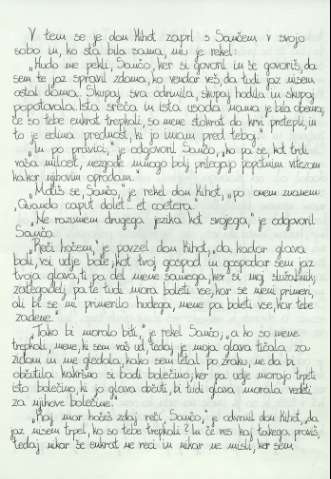 V tem se je don Kihot zaprl s Sančem v svojo
sobo in, ko sta bila sama, mu je rekel:
"Hudo me peklí, Sančo, ker si govoril in še govoriš, da
sem te jaz spravil zdoma, ko vendar veš, da tudi jaz nisem
ostal doma. Skupaj sva odrinila, skupaj hodila in skupaj
popotovala. Ista sreča in ista usoda nama je bila obema;
če so tebe enkrat trepkali, so mene stokrat do krvi pretepli, in
to je edina prednost, ki jo imam pred teboj."
"In po pravici," je odgovoril Sančo, "ko pa se, kot trdi
vaša milost, nezgode mnogo bolj prilegajo popotnim vitezom
kakor njihovim oprodam."
"Motiš se, Sančo," je rekel don Kihot, "po onem znanem
'Quando caput dolet' et caetera."
"Ne razumem drugega jezika kot svojega," je odgovoril
Sančo.
"Reči hočem," je povzel don Kihot, "da kadar glava
boli, vsi udje bole; kot tvoj gospod in gospodar sem jaz
tvoja glava, ti pa del mene samega, ker si moj služabnik;
zategadelj pa te tudi mora boleti vse, kar se meni primeri,
ali bi se mi primerilo hudega, mene pa boleti vse, kar tebe
zadene."
"Tako bi moralo biti," je rekel Sančo, "a ko so mene
trepkali, mene, ki sem vaš ud, tedaj je moja glava tičala za
zidom in me gledala, kako sem letal po zraku, ne da bi
občutila kakršno si bodi bolečino; ker pa udje morajo trpeti
isto bolečino, ki jo glava občuti, bi tudi glava morala vedeti
za njihove bolečine."
"Kaj mar hočeš zdaj reči, Sančo," je odvrnil don Kihot, "da
jaz nisem trpel, ko so tebe trepkali? In če res kaj takega praviš,
tedaj nikar še enkrat ne reci in nikar ne misli, ker sem